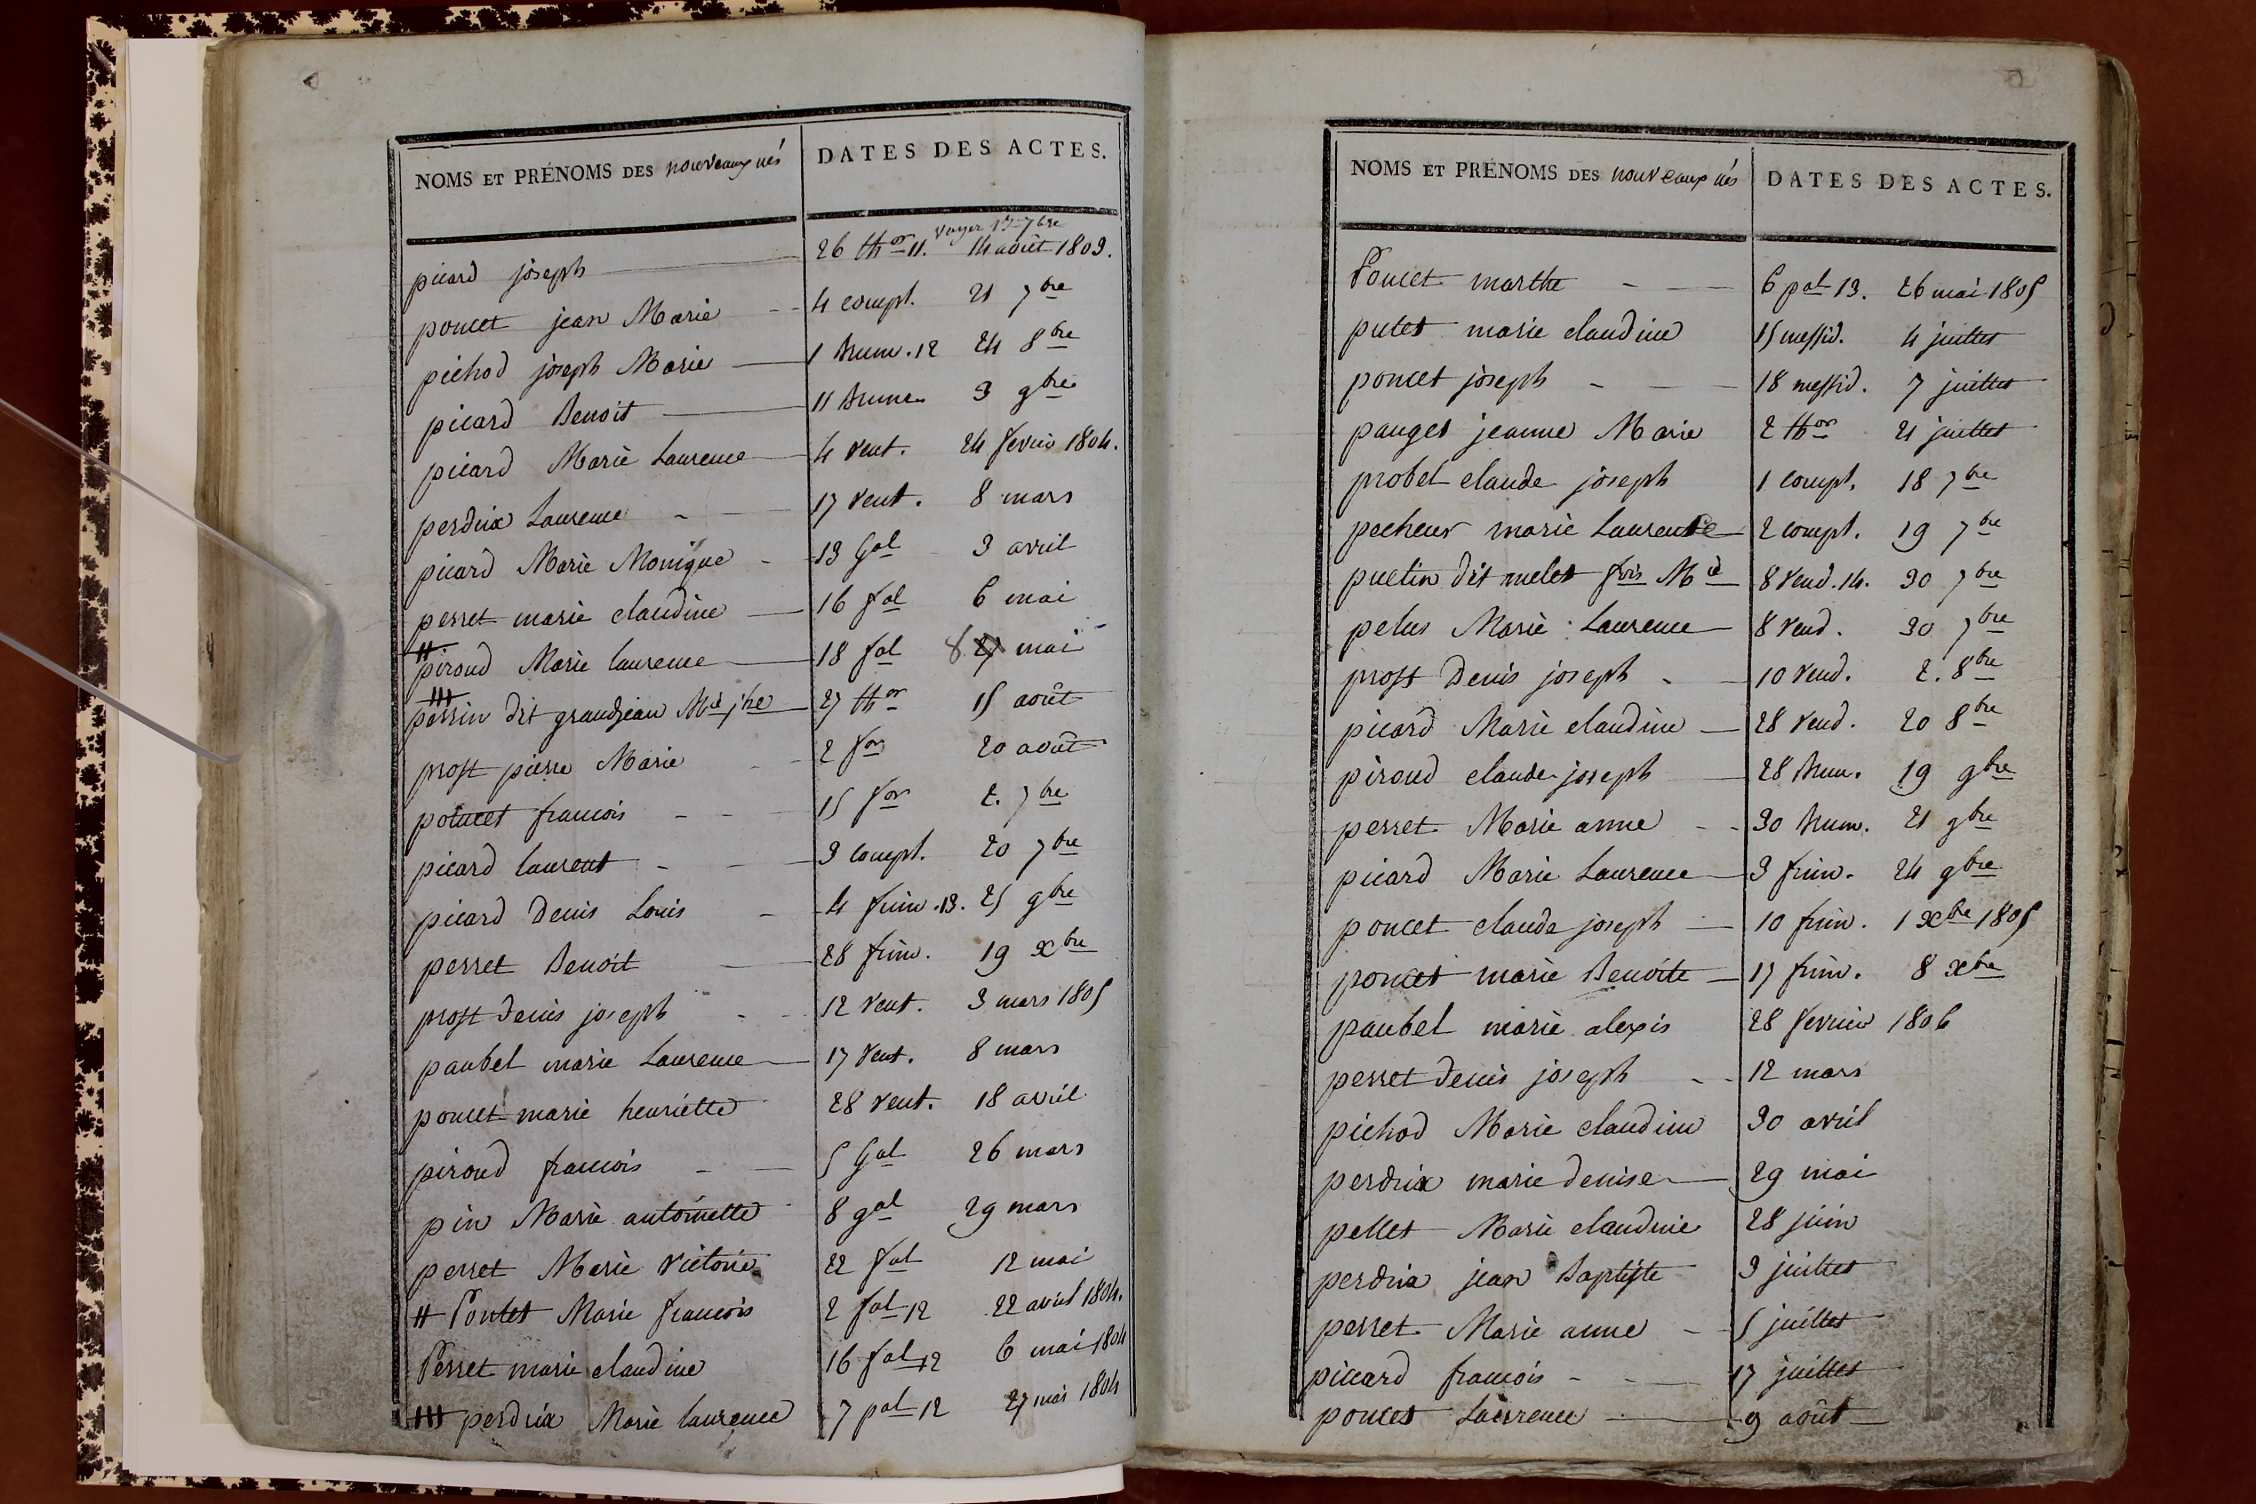 NOMS ET PRÉNOMS DES nouveaux nés DATES DES ACTES.
voyez 17 7bre
picard joseph 26 thor 11. 14 août 1803.
poncet jean Marie 4 compl. 21 7bre
pichod joseph Marie 1 brum. 12 24 8bre
picard Benoit 11 brume 3 9bre
picard Marie Laurence 4 vent. 24 fevrier 1804.
perdrix Laurence 17 vent. 8 mars
picard Marie Monique 13 Gal 3 avril
perret marie claudine 16 fal 6 mai
# piroud Marie laurence 18 fal 8 mai
perrin dit grandjean Mie jhe 27 thor 15 août
prost pierre Marie 2 for 20 août
poncet francois 15 for 2. 7bre
picard laurent 3 compl. 20 7bre
picard Denis Louis 4 frim. 13. 25 9bre
perret Benoit 28 frim. 19 xbre
prost denis joseph 12 vent. 3 mars 1805
paubel marie Laurence 17 vent. 8 mars
poncet marie henriette 28 vent. 18 avril
piroud francois 5 Gal 26 mars
pin Marie antoinette 8 gal 29 mars
perret Marie Victoire 22 fal 12 mai
# Pontet Marie francois 2 fal 12 22 avril 1804.
Perret marie claudine 16 fal 12 6 mai 1804
perdrix Marie laurence 7 pal 12 27 mai 1804
NOMS ET PRÉNOMS DES nouveaux nés DATES DES ACTES.
Poncet marthe 6 pal 13. 26 mai 1805
putet marie claudine 15 messid. 4 juillet
poncet joseph 18 messid. 7 juillet
pauget jeanne Marie 2 thor 21 juillet
probel claude joseph 1 compl. 18 7bre
pecheur marie Laurence 2 compl. 19 7bre
puelin dit melet fois Mie 8 vend. 14. 30 7bre
pelus Marie Laurence 8 vend. 30 7bre
prost Denis joseph 10 vend. 2. 8bre
picard Marie claudine 28 vend. 20 8bre
piroud claude joseph 28 brum. 19 9bre
perret Marie anne 30 brum. 21 9bre
picard Marie Laurence 3 frim. 24 9bre
poncet claude joseph 10 frim. 1 xbre 1805
poncet marie Benoite 17 frim. 8 xbre
paubel marie alexis 28 fevrier 1806
perret denis joseph 12 mars
pichod Marie claudine 30 avril
perdrix marie denise 29 mai
pellet Marie claudine 28 juin
perdrix jean Baptiste 3 juillet
perret Marie anne 5 juillet
picard francois 17 juillet
poncet Laurence 9 août